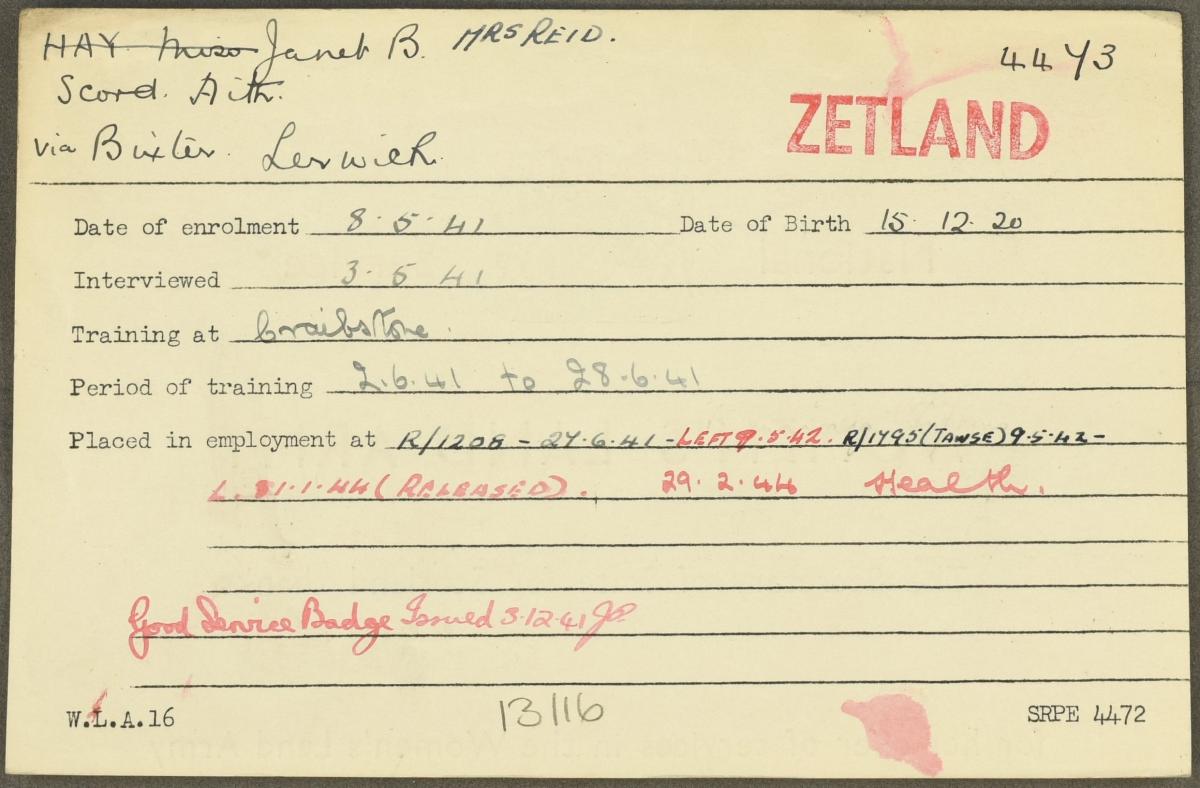 HAY Miss Janet B. MRS REID.
4473
Scord. Aith.
ZETLAND
via Bixter. Lerwick.
Date of enrolment 8.5.41 Date of Birth 15.12.20
Interviewed 3.5.41
Training at Craibstone.
Period of training 2.6.41 to 28.6.41
Placed in employment at R/1208 - 27.6.41 - LEFT 9.5.42. R/1795 (TAWSE) 9.5.42 -
L. 31.1.44 (RELEASED). 29.2.44 Health.
Good Service Badge Issued 3.12.41
W.L.A.16
13/116
SRPE 4472